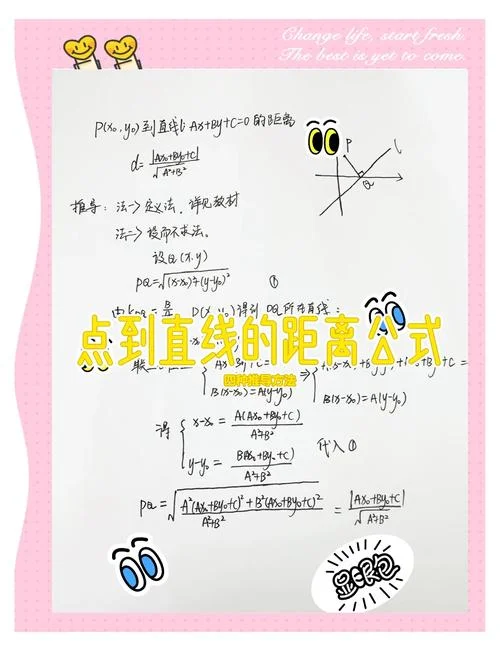 Change life, start fresh.
The best is yet to come.
P(x₀,y₀)到直线l:Ax+By+C=0的距离
d=|Ax₀+By₀+C|/√A²+B²
P
l
Q
推导:法一→定义法,详见教材
法二→设而不求法。
设Q(x,y)
PQ=√(x-x₀)²+(y-y₀)² ①
点到直线的距离公式
四种推导方法
B(x-x₀)=A(y-y₀) B(x-x₀)=A(y-y₀)
得 { x-x₀=A(Ax₀+By₀+C)/A²+B²
y-y₀=B(Ax₀+By₀+C)/A²+B² 代入①
PQ=√A²(Ax₀+By₀+C)²+B²(Ax₀+By₀+C)²/A²+B² =|Ax₀+By₀+C|/√A²+B²
显眼包